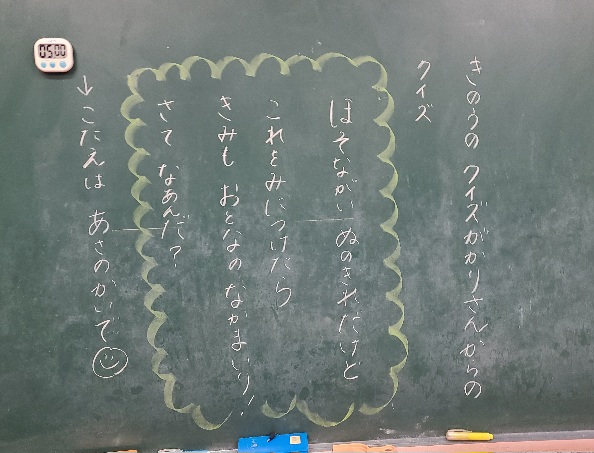 きのうの クイズがかりさんからの
クイズ
ほそながい ぬのきれだけど
これをみにつけたら
きみも おとなの なかまいり!
さて なあんだ?
↓こたえは あさのかいで☺
05:00